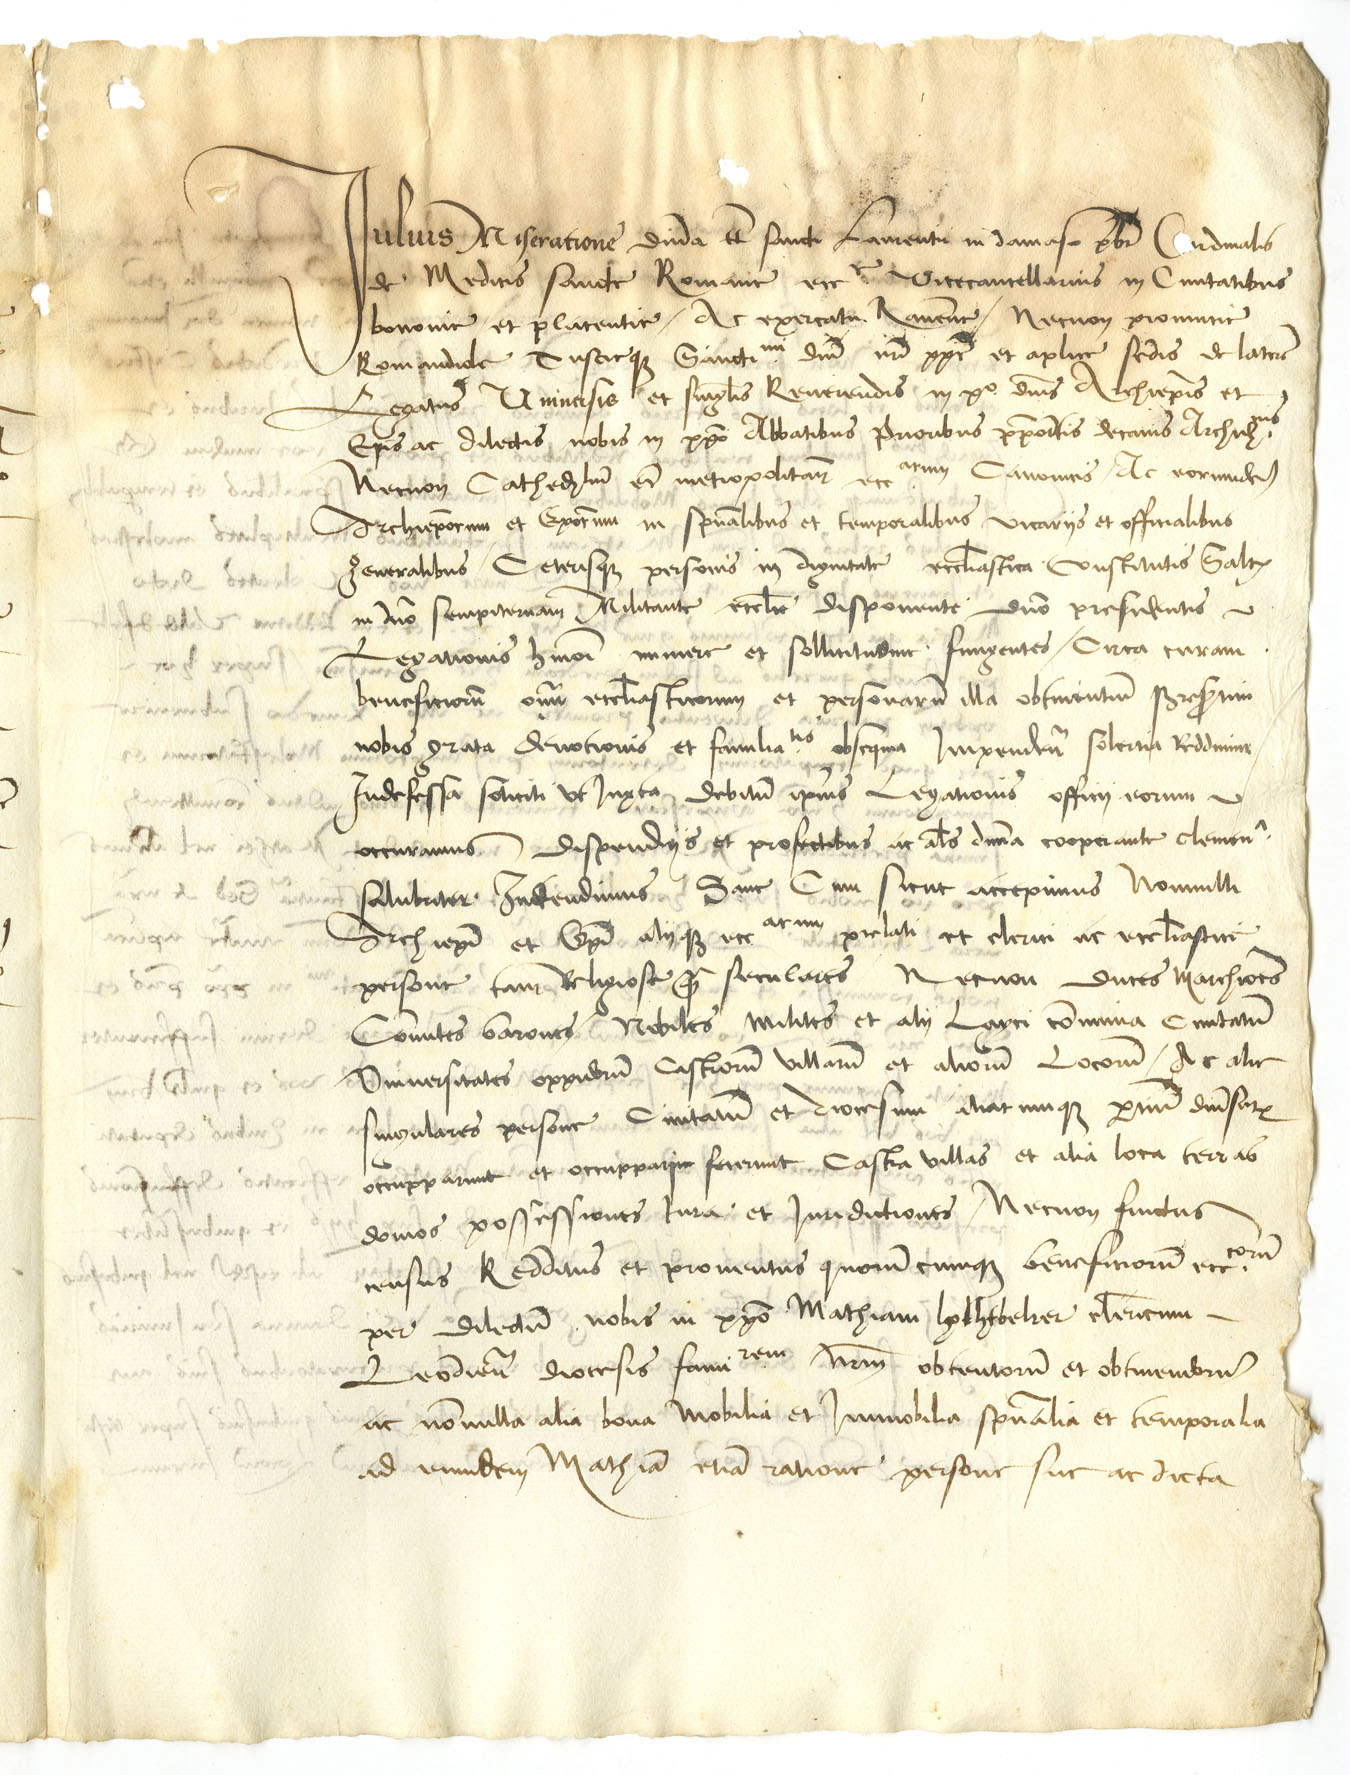 Julius Miseratione diuīa tt̄ sancti Laurentii in damaso pb̄r Cardinalis
de Medicis sancte Romane ecc̄ᵉ Vicecancellarius in Ciuitatibus
bononie et placentie / Ac exarcatu Rauenne / Necnon prouincie
Romandiole Tuscieqꝫ Sanctiᵐⁱ dnī nrī pp̄e et aplice sedis de latere
Legatus Uniuersis et singlīs Reuerendis in xp̄o dnīs Archiepīs et
Epīs ac dilectis nobis in xp̄o Abbatibus Prioribus p̄positis decanis Archidⁿⁱˢ
Necnon Cathedraliū et metropolitan̄ eccᵃʳᵘᵐ Canonicis / Ac eorundē
Archiepōrum et Epōrum in spūalibus et temporalibus vicarijs et officialibus
generalibus / Ceterisqꝫ personis in dignitate eccl̄iastica Constitutis Salt̄
in dnō sempiternam Militante eccl̄ie disponente dnō presidentis
Legationis hmōi munere et sollicitudine fungentes / Circa curam
beneficiorū om̄iū eccl̄iasticorum et personarū illa obtinentiū presertim
nobis grata deuotionis et familiaᵗⁱˢ obsequia Impendētiū solertia Reddimur
Indefessa soliciti vt Juxta debitū ipsius Legationis officij eorum
occuramus dispendijs et profectibus ac al̄s diuīa cooperante clementᵃ
salubriter Intendimus Sane Cum sicut accepimus Nonnulli
Archiepī et Epī alijqꝫ eccᵃʳᵘᵐ prelati et clerici ac eccl̄iastice
persone tam Religiose q̄ seculares Necnon duces Marchiones
Comites barones Nobiles milites et alij Layci cōmunia Ciuitatū
Vniuersitates oppidorū Castrorū villarū et aliorū Locorū / Ac alie
singulares persone Ciuitatū et diocesum aliarumqꝫ partiū diuersarꝝ
occupparunt et occuppari fecerunt Castra villas et alia loca terras
domos possessiones Jura et Jurisdictiones / Necnon fructus
census Redditus et prouentus quorūcumqꝫ beneficiorū eccᶜᵒʳᵘ̄
per dilectū nobis in xp̄o Mathiam clericum
Leodien̄ diocesis famiʳᵉᵐ nrm̄ obtentorū et obtinendorū
ac nōnulla alia bona Mobilia et Immobilia spūalia et temporalia
ad eundem Mathiā etiā ratione persone sue ac dicta